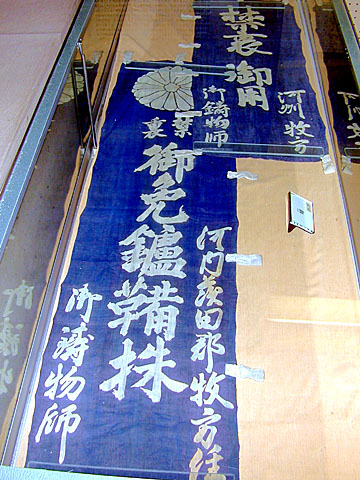 河州 牧方
禁裏 御用
御鑄物師
禁裏
河内茨田郡牧方住
御免鑪鞴株
御鑄物師